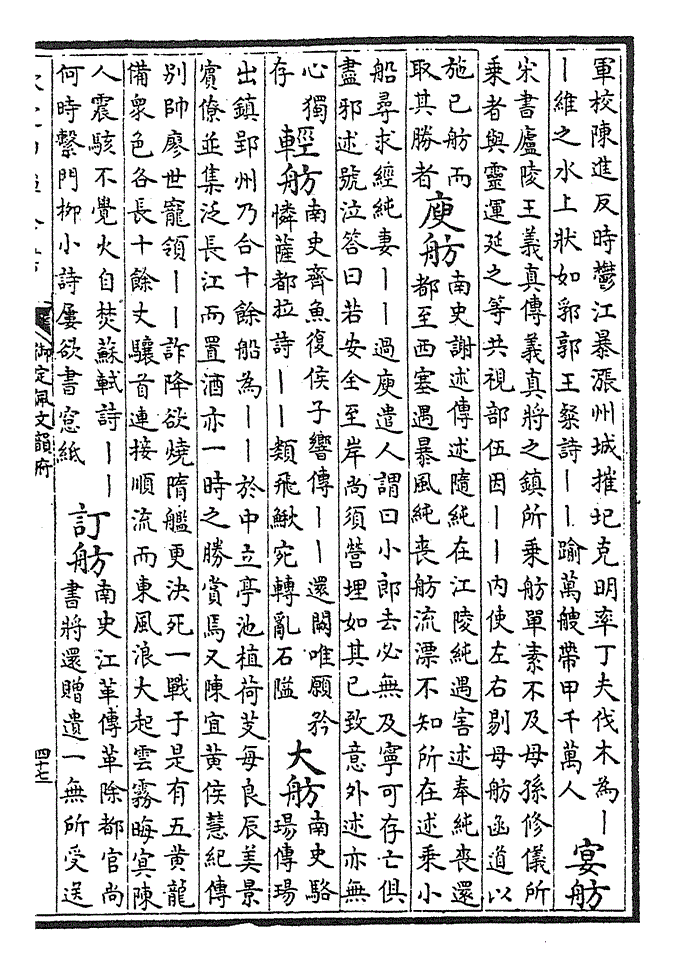 軍校陳進反時鬱江暴漲州城摧圮克明率丁夫伐木為｜
｜維之水上狀如郛郭王粲詩｜｜踰萬艘帶甲千萬人
宴舫
宋書廬陵王義真傳義真將之鎮所乗舫單素不及母孫修儀所
乗者與靈運延之等共視部伍因｜｜内使左右剔母舫函道以
施已舫而
取其勝者
庾舫
南史謝述傳述隨純在江陵純遇害述奉純喪還
都至西塞遇暴風純喪舫流漂不知所在述乗小
船尋求經純妻｜｜過庾遣人謂曰小郎去必無及寧可存亡俱
盡邪述號泣答曰若安全至岸尚須營埋如其已致意外述亦無
心獨
存
輕舫
南史齊魚復侯子響傳｜｜還闕唯願矜
憐薩都拉詩｜｜類飛鰍宛轉亂石隘
大舫
南史駱
瑒傳瑒
出鎮郢州乃合十餘船為｜｜於中立亭池植荷芰每良辰美景
賓僚並集泛長江而置酒亦一時之勝賞焉又陳宜黄侯慧紀傳
别帥廖世寵領｜｜詐降欲燒隋艦更決死一戰于是有五黄龍
備衆色各長十餘丈驤首連接順流而東風浪大起雲霧晦㝠陳
人震駭不覺火自焚蘇軾詩｜｜
何時繫門柳小詩屢欲書窓紙
訂舫
南史江革傳革除都官尚
書將還贈遺一無所受送
御定佩文韻府
四十七